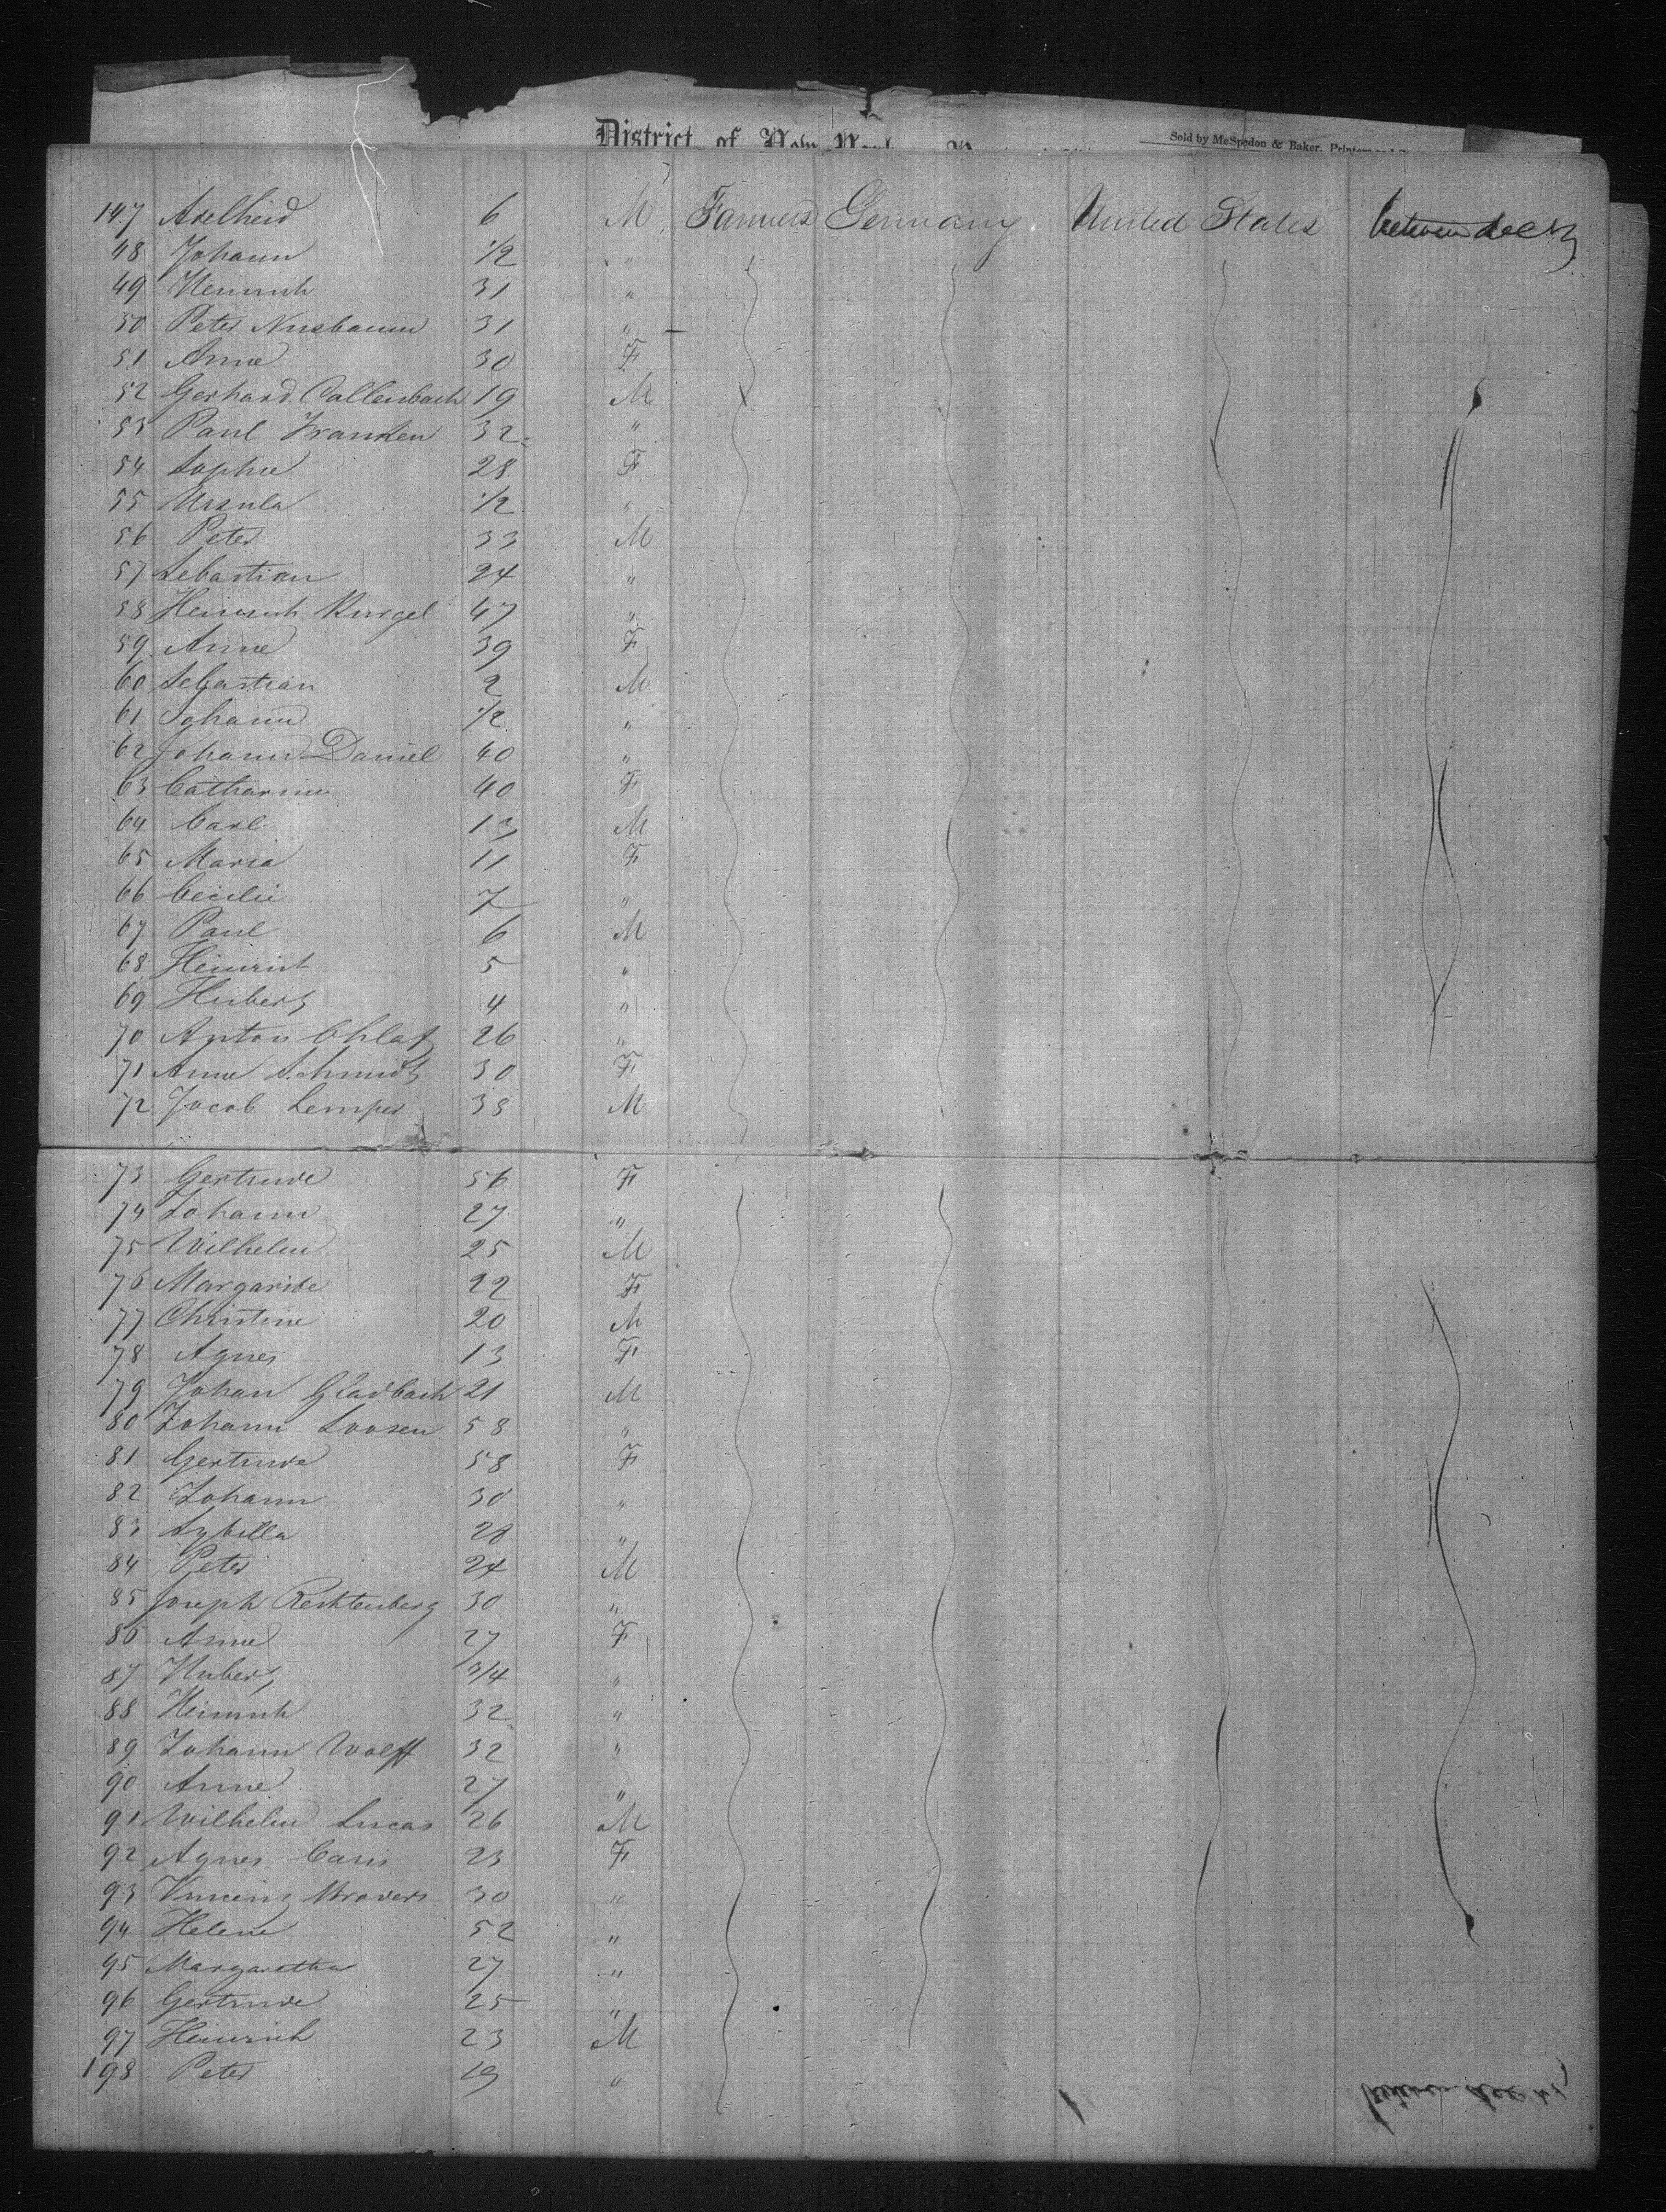 District of New York
Sold by McSpedon & Baker, Printers
147 Adelheid 6 M Farmers Germany United States between decks
48 Johann 1/2 "
49 Heinrich 31 "
50 Peter Nusbaum 31 "
51 Anne 30 F
52 Gerhard Callenbach 19 M
53 Paul Franzen 32 "
54 Sophie 28 F
55 Ursula 1/2 "
56 Peter 33 M
57 Sebastian 24 "
58 Heinrich 47 "
59 Anne 39 F
60 Sebastian 2 M
61 Johann 1/2 "
62 Johann Daniel 40 "
63 Catharine 40 F
64 Carl 13 M
65 Maria 11 F
66 Cecilie 7 "
67 Paul 6 M
68 Heinrich 5 "
69 Hubert 4 "
70 Anton 26 "
71 Anne Schmidt 30 F
72 Jacob Lemper 38 M
73 Gertrude 56 F
74 Johann 27 "
75 Wilhelm 25 M
76 Margarithe 22 F
77 Christine 20 M
78 Agnes 13 F
79 Johan Gladbach 21 M
80 Johann Loosen 58 "
81 Gertrude 58 F
82 Johann 30 "
83 Sybilla 28 "
84 Peter 24 M
85 Joseph Rechtenberg 30 "
86 Anne 27 F
87 Hubert 3/4 "
88 Heinrich 32 "
89 Johann Wolff 32 "
90 Anne 27 "
91 Wilhelm Lucas 26 M
92 Agnes Caris 23 F
93 30 "
94 Helene 52 "
95 Margaretha 27 "
96 Gertrude 25 "
97 Heinrich 23 M
198 Peter 19 "